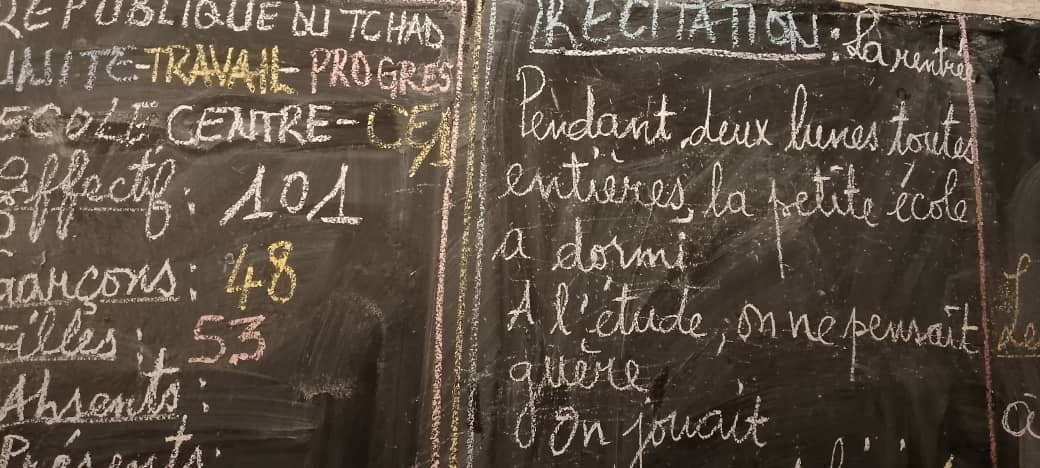 REPUBLIQUE DU TCHAD
UNITE-TRAVAIL-PROGRES
ECOLE CENTRE-CE1
Effectif: 101
garçons: 48
Filles: 53
Absents:
Présents:
RECITATION: La rentrée
Pendant deux lunes toutes
entières, la petite école
a dormi
A l'étude, on ne pensait
guère
On jouait
à